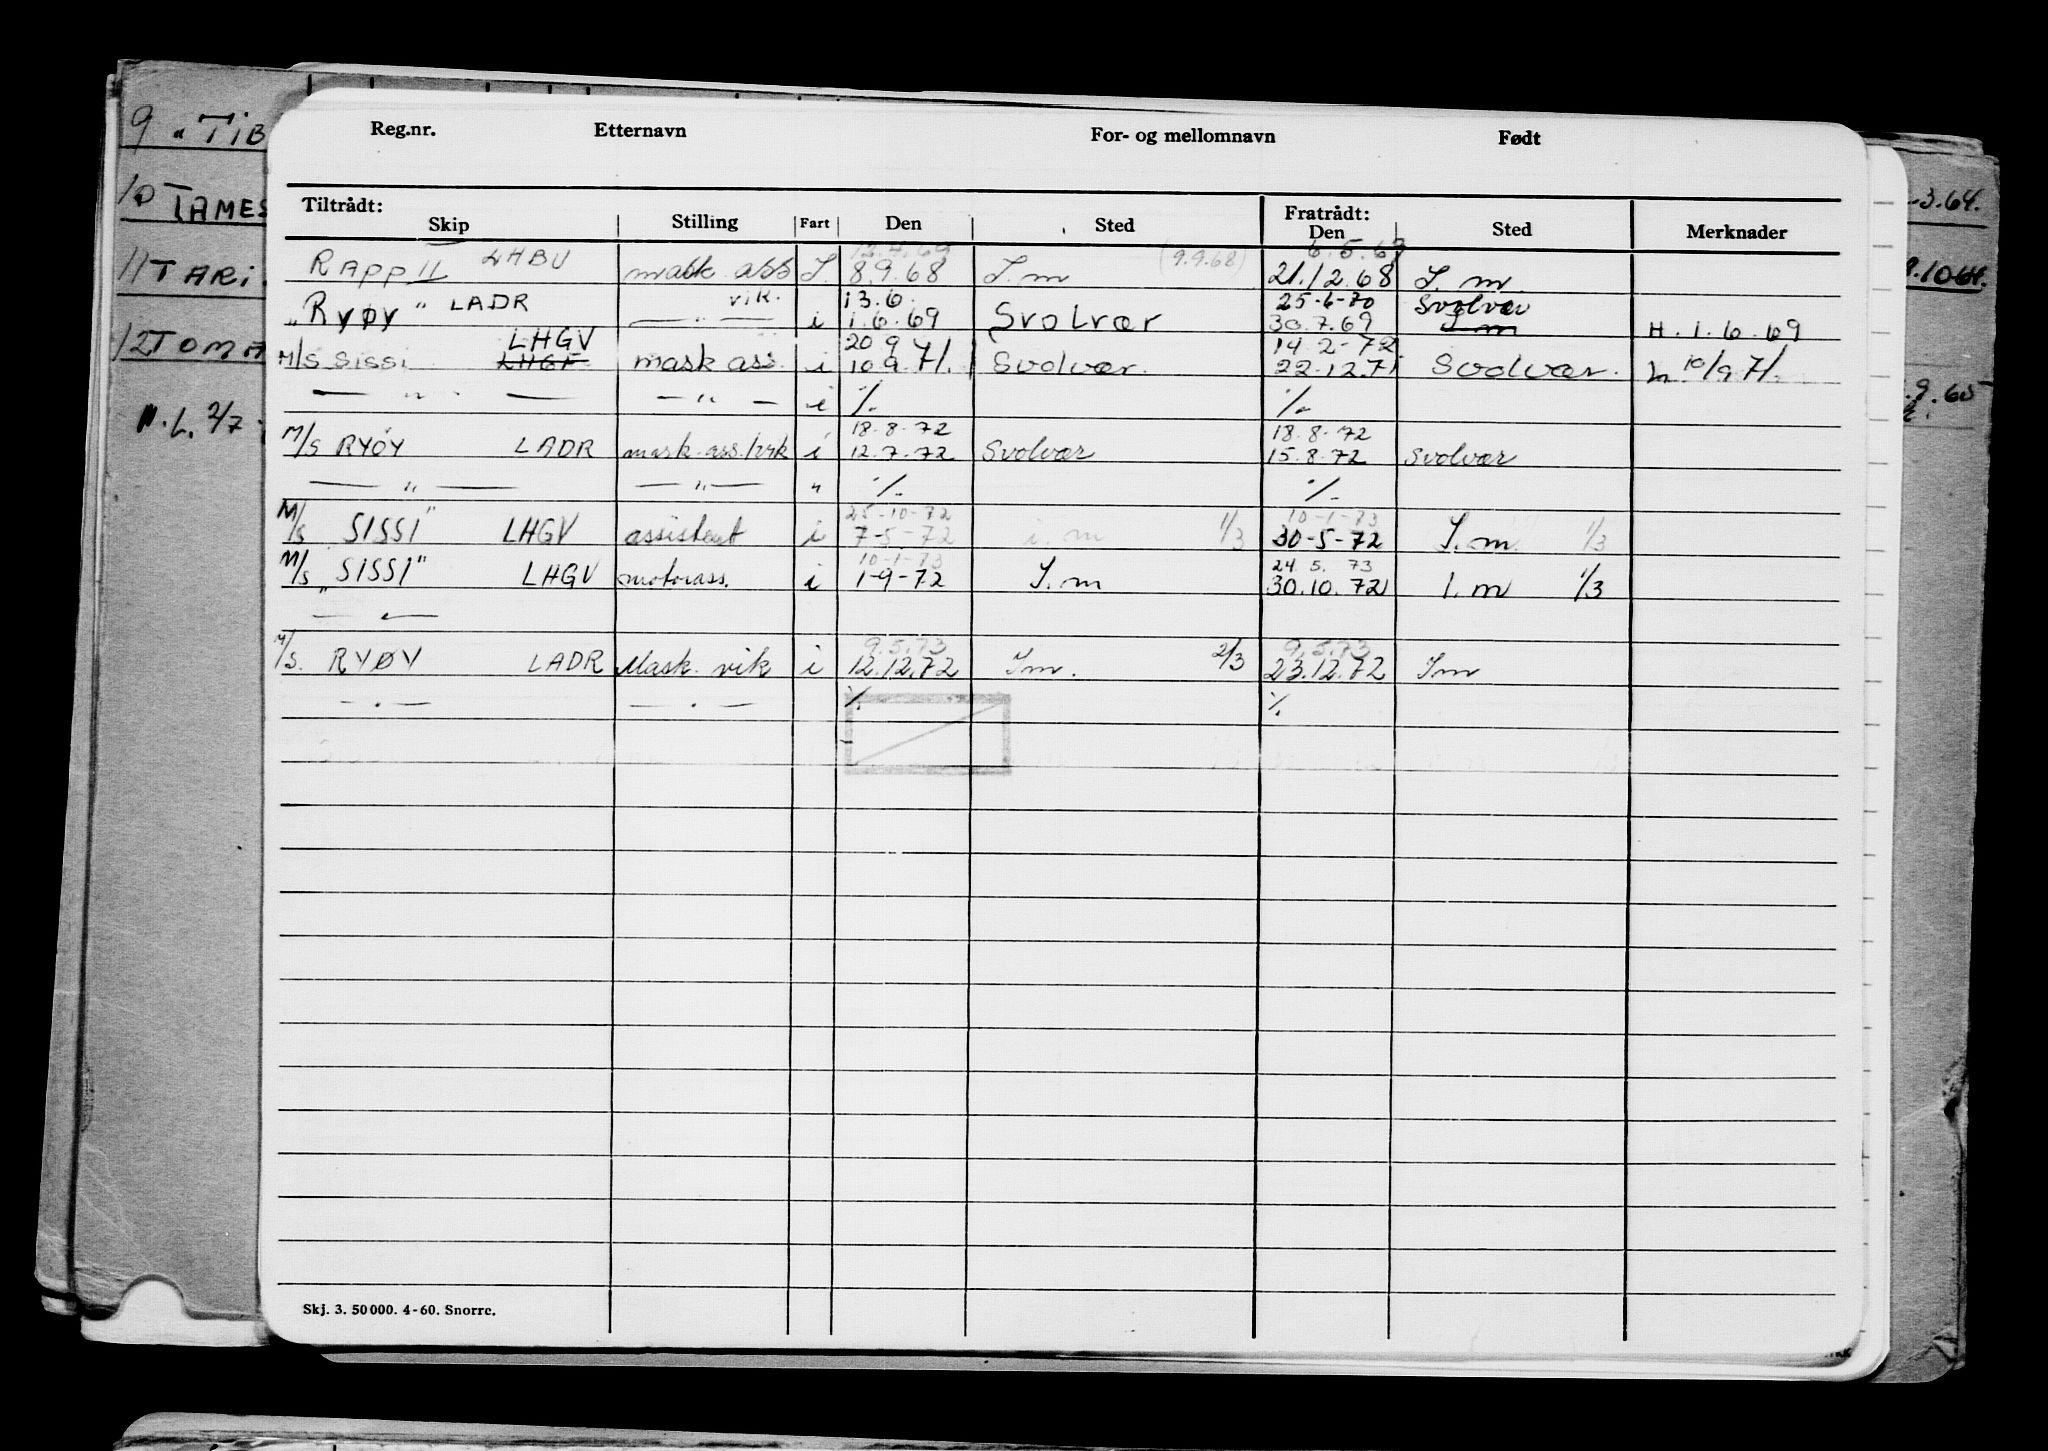 9 " TIB
10 TAMES
11 TARI
12 TOMA
Reg.nr. Etternavn For- og mellomnavn Født
Tiltrådt: Fratrådt:
Skip Stilling Fart Den Sted Den Sted Merknader
13.4.69 (9.9.68) 6.5.69
RAPP II LHBU mask ass I. 8.9.68 I.m 21.12.68 I.m.
vik. 13.6. 25-6-70 Svolvær
"RYØY" LADR — " — i 1.6.69 Svolvær 30.7.69 I m H. 1.6.69
LHGV 20 9 14-2-72
M/S SISSI LHGF mask ass. i 10 9.71. Svolvær. 22.12.71 Svolvær. h 10/9 71.
— " — — " — i ·/. ·/.
18.8.72 18.8.72
M/S RYÖY LADR mask.ass./vik i 12.7.72 Svolvær 15.8.72 Svolvær
— " — — " — " ·/. ·/.
25-10-72 10-1-73
M/S SISSI" LHGV assistent i 7-5-72 i.m 1/3 30-5-72 I.m. 1/3
10-1-73 24 5. 73
M/S "SISSI" LHGV motorass. i 1-9-72 I.m 30.10.72 I.m 1/3
— " —
9.5.73 9.5.73
M/S. RYØY LADR Mask. vik i 12.12.72 Im. 2/3 23.12.72 Im
— . — — . — ·/. ·/.
Skj. 3. 50 000. 4-60. Snorre.
3.64.
.10 64.
.9.65